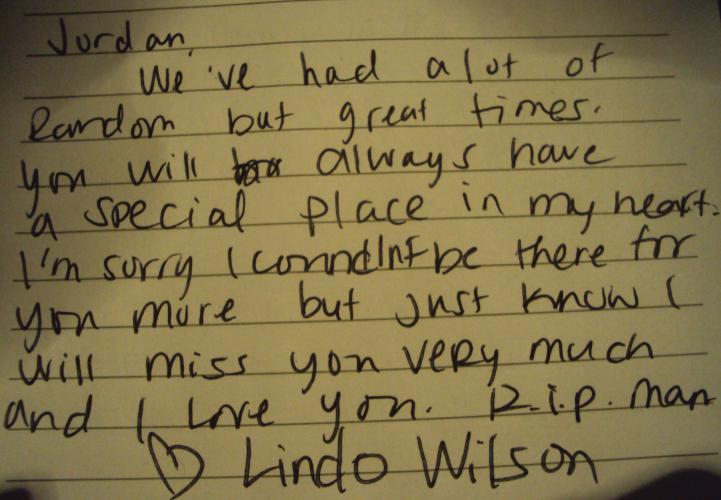 Jordan,
We've had alot of
Random but great times.
you will always have
a special place in my heart.
I'm sorry I counldInt be there for
you more but just know I
will miss you very much
and I love you. R.i.p. man
♡ Lindo Wilson